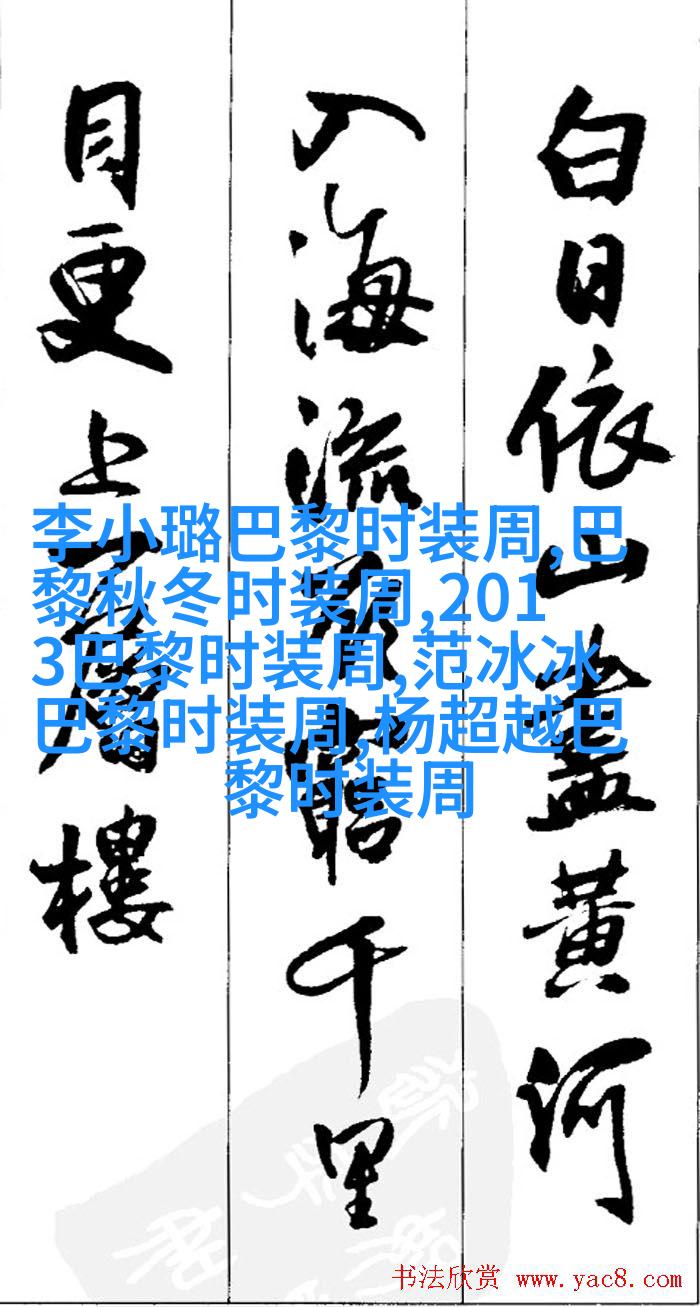 白日依山盡黄河
入海流欲窮千里
目更上一層樓
李小璐巴黎时装周,巴
黎秋冬时装周,201
3巴黎时装周,范冰冰
巴黎时装周,杨超越巴
黎时装周
书法欣赏 www.yac8.com